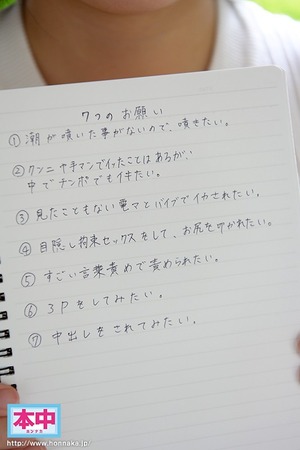 7つのお願い
①潮が噴いた事がないので、噴きたい。
②クンニや手マンでイッたことはあるが、
中でチンポでもイキたい。
③見たこともない電マとバイブでイカされたい。
④目隠し拘束セックスをして、お尻を叩かれたい。
⑤すごい言葉責めで責められたい。
⑥3Pをしてみたい。
⑦中出しをされてみたい。
本中
ホンナカ
http://www.honnaka.jp/